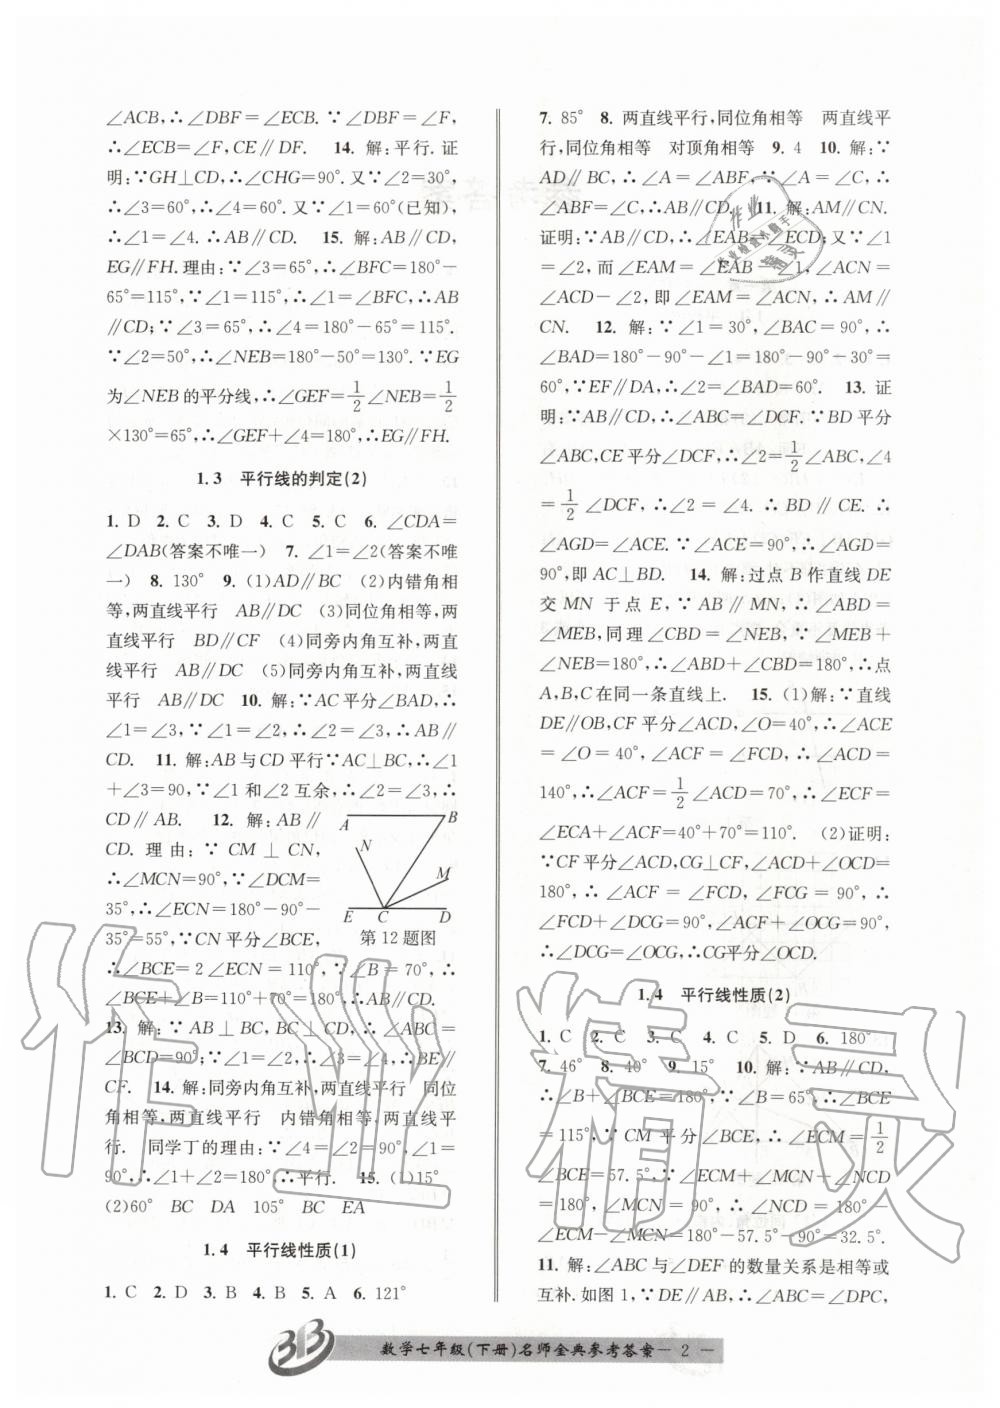 ∠ACB,∴∠DBF=∠ECB.∵∠DBF=∠F,
∴∠ECB=∠F,CE∥DF.　14. 解:平行.证
明:∵GH⊥CD,∴∠CHG=90°.∵∠2=30°,
∴∠3=60°,∴∠4=60°.∵∠1=60°(已知),
∴∠1=∠4.∴AB∥CD.　15. 解:AB∥CD,
EG∥FH.理由:∵∠3=65°,∴∠BFC=180°-
65°=115°,∵∠1=115°,∴∠1=∠BFC,∴AB
∥CD;∵∠3=65°,∴∠4=180°-65°=115°.
∵∠2=50°,∴∠NEB=180°-50°=130°.∵EG
为∠NEB的平分线,∴∠GEF=1/2∠NEB=1/2
×130°=65°,∴∠GEF+∠4=180°,∴EG∥FH.
1.3　平行线的判定(2)
1. D　2. C　3. D　4. C　5. C　6. ∠CDA=
∠DAB(答案不唯一)　7. ∠1=∠2(答案不唯
一)　8. 130°　9. (1)AD∥BC　(2)内错角相
等,两直线平行　AB∥DC　(3)同位角相等,两
直线平行　BD∥CF　(4)同旁内角互补,两直
线平行　AB∥DC　(5)同旁内角互补,两直线
平行　AB∥DC　10. 解:∵AC平分∠BAD,∴
∠1=∠3,∵∠1=∠2,∴∠2=∠3,∴AB∥
CD.　11. 解:AB与CD平行∵AC⊥BC,∴∠1
+∠3=90,∵∠1和∠2互余,∴∠2=∠3,∴
CD∥AB.　12. 解:AB∥
CD.理由:∵CM⊥CN,
∴∠MCN=90°,∵∠DCM=
35°,∴∠ECN=180°-90°-
35°=55°,∵CN平分∠BCE,
∴∠BCE=2∠ECN=110°,∵∠B=70°,∴
∠BCE+∠B=110°+70°=180°,∴AB∥CD.
A B N M E C D
第12题图
13. 解:∵AB⊥BC,BC⊥CD,∴∠ABC=
∠BCD=90°;∵∠1=∠2,∴∠3=∠4,∴BE∥
CF.　14. 解:同旁内角互补,两直线平行　同位
角相等,两直线平行　内错角相等,两直线平
行.　同学丁的理由:∵∠4=∠2=90°,∠1=
90°,∴∠1+∠2=180°,∴平行.　15. (1)15°
(2)60°　BC　DA　105°　BC　EA
1.4　平行线性质(1)
1. C　2. D　3. B　4. B　5. A　6. 121°
7. 85°　8. 两直线平行,同位角相等　两直线平
行,同位角相等　对顶角相等　9. 4　10. 解:∵
AD∥BC,∴∠A=∠ABF,∵∠A=∠C,∴
∠ABF=∠C,∴AB∥CD.　11. 解:AM∥CN.
证明:∵AB∥CD,∴∠EAB=∠ECD;又∵∠1
=∠2,而∠EAM=∠EAB-∠1,∠ACN=
∠ACD-∠2,即∠EAM=∠ACN,∴AM∥
CN.　12. 解:∵∠1=30°,∠BAC=90°,∴
∠BAD=180°-90°-∠1=180°-90°-30°=
60°,∵EF∥DA,∴∠2=∠BAD=60°.　13. 证
明:∵AB∥CD,∴∠ABC=∠DCF.∵BD平分
∠ABC,CE平分∠DCF,∴∠2=1/2∠ABC,∠4
=1/2∠DCF,∴∠2=∠4.∴BD∥CE.∴
∠AGD=∠ACE.∵∠ACE=90°,∴∠AGD=
90°,即AC⊥BD.　14. 解:过点B作直线DE
交MN于点E,∵AB∥MN,∴∠ABD=
∠MEB,同理∠CBD=∠NEB,∵∠MEB+
∠NEB=180°,∴∠ABD+∠CBD=180°,∴点
A,B,C在同一条直线上.　15. (1)解:∵直线
DE∥OB,CF平分∠ACD,∠O=40°,∴∠ACE
=∠O=40°,∠ACF=∠FCD,∴∠ACD=
140°,∴∠ACF=1/2∠ACD=70°,∴∠ECF=
∠ECA+∠ACF=40°+70°=110°.　(2)证明:
∵CF平分∠ACD,CG⊥CF,∠ACD+∠OCD=
180°,∴∠ACF=∠FCD,∠FCG=90°,∴
∠FCD+∠DCG=90°,∠ACF+∠OCG=90°,
∴∠DCG=∠OCG,∴CG平分∠OCD.
1.4　平行线性质(2)
1. C　2. C　3. C　4. C　5. D　6. 180°
7. 46°　8. 40°　9. 15°　10. 解:∵AB∥CD,
∴∠B+∠BCE=180°,∵∠B=65°,∴∠BCE
=115°,∵CM平分∠BCE,∴∠ECM=1/2
∠BCE=57.5°,∵∠ECM+∠MCN+∠NCD
=180°,∠MCN=90°,∴∠NCD=180°-
∠ECM-∠MCN=180°-57.5°-90°=32.5°.
11. 解:∠ABC与∠DEF的数量关系是相等或
互补.如图1,∵DE∥AB,∴∠ABC=∠DPC,
数学七年级(下册)名师金典参考答案— 2 —
作业精灵